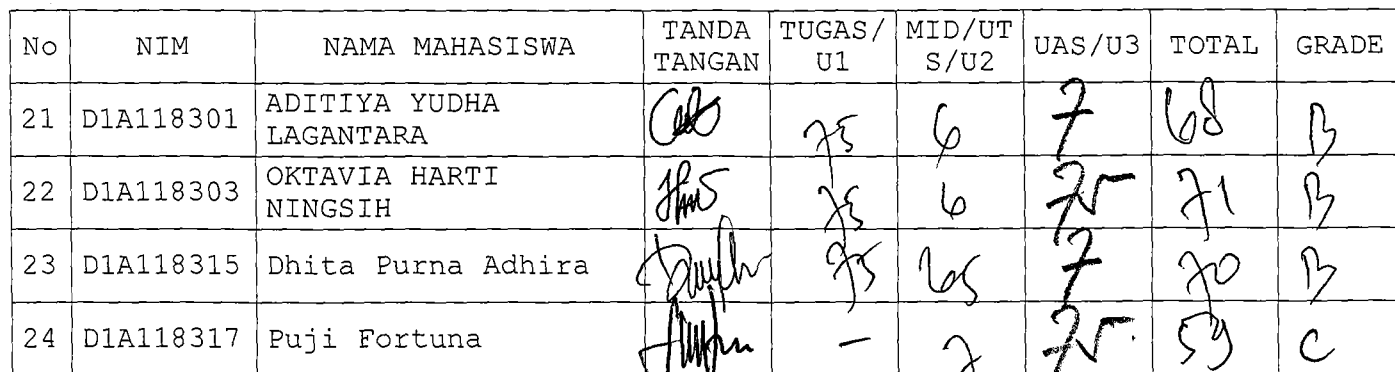 No NIM NAMA MAHASISWA TANDA TANGAN TUGAS/ U1 MID/UT S/U2 UAS/U3 TOTAL GRADE
21 D1A118301 ADITIYA YUDHA LAGANTARA 75 6 7 68 B
22 D1A118303 OKTAVIA HARTI NINGSIH 75 6 75 71 B
23 D1A118315 Dhita Purna Adhira 75 65 7 70 B
24 D1A118317 Puji Fortuna - 7 75. 59 C